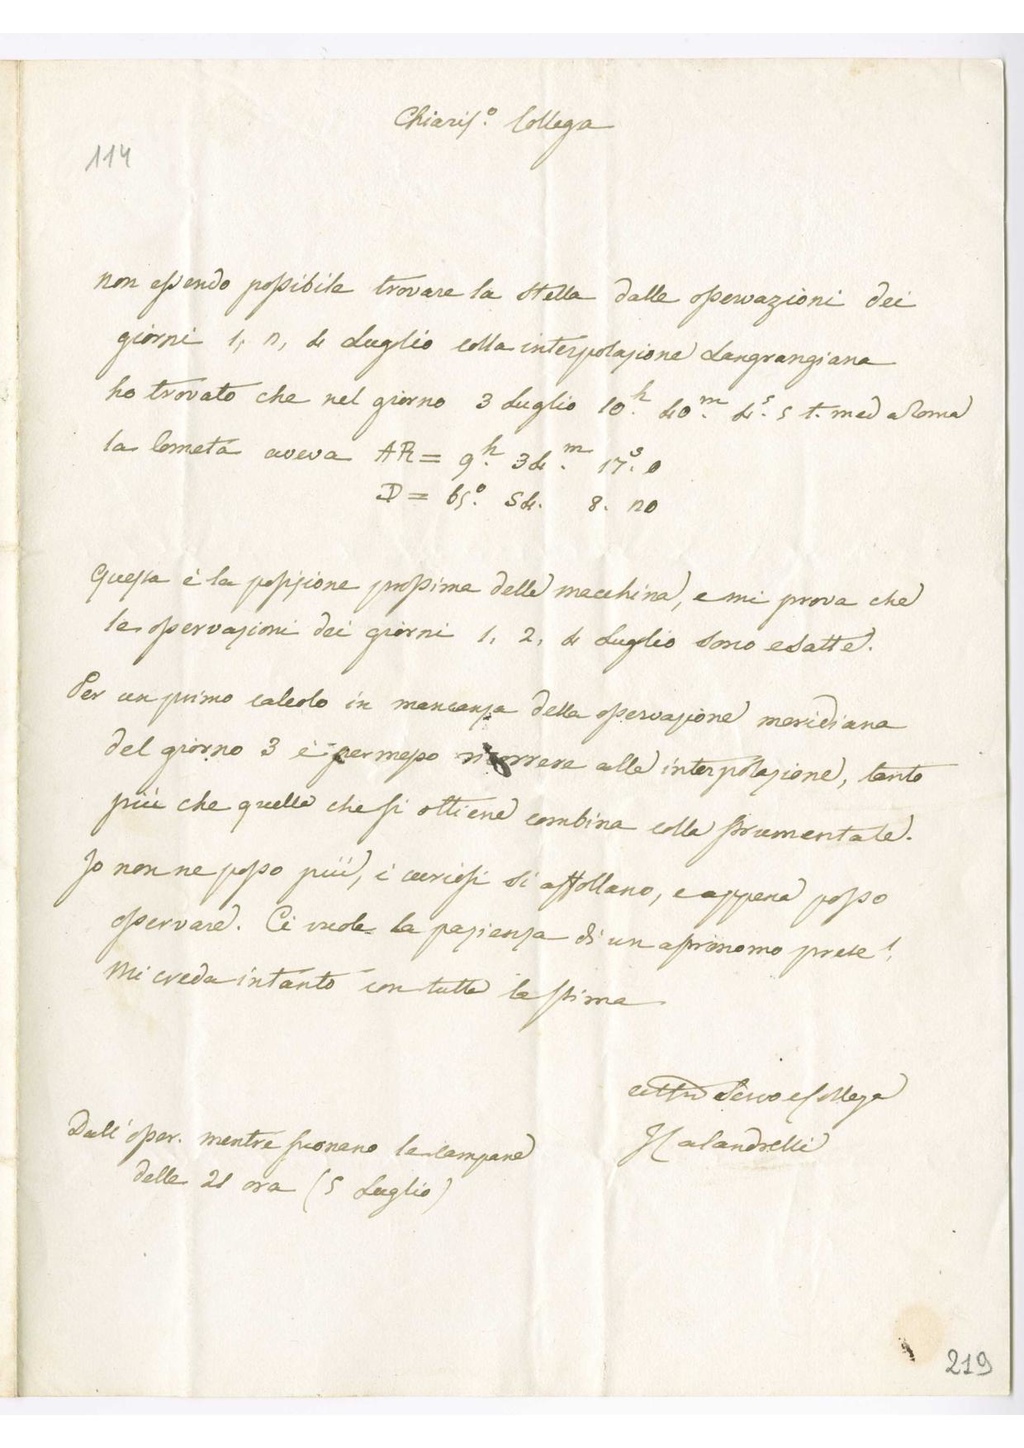 Chiaris.º Collega
114
non essendo possibile trovare la stella dalle osservazioni dei
giorni 1, 2, 4 Luglio colla interpolazione Langrangiana
ho trovato che nel giorno 3 Luglio 10.h 40.m 4.s 5 t. med a Roma
la Cometa aveva AR = 9.h 34.m 17.s 0
D = 65.º 54. 8. 20
Questa è la posizione prossima della macchina, e mi prova che
le osservazioni dei giorni 1, 2, 4 Luglio sono esatte.
Per un primo calcolo in mancanza della osservazione meridiana
del giorno 3 è permesso ricorrere alla interpolazione, tanto
più che quella che si ottiene combina colla strumentale.
Io non ne posso più, i curiosi si affollano, e appena posso
osservare. Ci vuole la pazienza di un astronomo prete!
Mi creda intanto con tutta la stima
Servo e Collega
I Calandrelli
Dall'osser. mentre suonano le campane
delle 21 ora (5 Luglio)
219